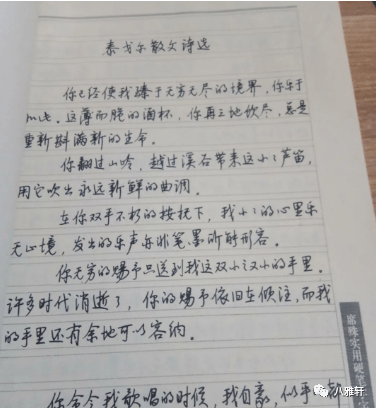 泰戈尔散文诗选
你已经使我臻于无穷无尽的境界，你乐于
此。这薄而脆的酒杯，你再三地饮尽，总是
重新斟满新的生命。
你翻过山岭，越过溪谷带来这小小芦笛，
用它吹出永远新鲜的曲调。
在你双手不朽的按抚下，我小小的心里乐
无止境，发出的乐声亦非笔墨所能形容。
你无穷的赐予只送到我这双小之又小的手里。
许多时代消逝了，你的赐予依旧在倾注，而我
的手里还有余地可以容纳。
你命令我歌唱的时候，我自豪，似乎
席殊实用硬笔字
八雅轩